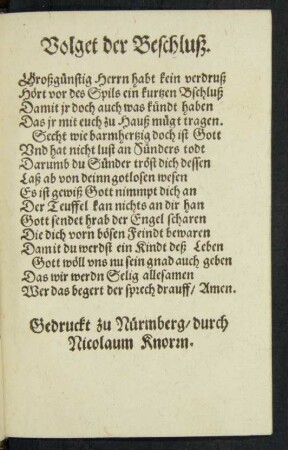 Volget der Beschluß.
Großgünstig Herrn habt kein verdruß
Hört vor des Spils ein kurtzen Bschluß
Damit jr doch auch was kündt haben
Das jr mit euch zu Hauß mügt tragen.
Secht wie barmhertzig doch ist Gott
Vnd hat nicht lust an Sünders todt
Darumb du Sünder tröst dich dessen
Laß ab von deinn gotlosen wesen
Es ist gewiß Gott nimmpt dich an
Der Teuffel kan nichts an dir han
Gott sendet hrab der Engel scharen
Die dich vorn bösen Feindt bewaren
Damit du werdst ein Kindt deß Leben
Gott wöll vns nu sein gnad auch geben
Das wir werdn Selig allesamen
Wer das begert der sprech drauff/ Amen.
Gedruckt zu Nürmberg/ durch
Nicolaum Knorrn.